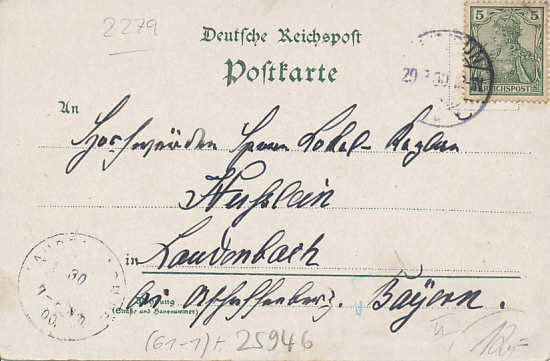 2279
Deutsche Reichspost
Postkarte
5 5
REICHSPOST
29
An
Hochwürden Herrn Lokal-Kaplan
in Laudenbach
Wohnung
(Straße und Hausnummer)
bei Aschaffenburg. Bayern.
(G1-1)+ 25946